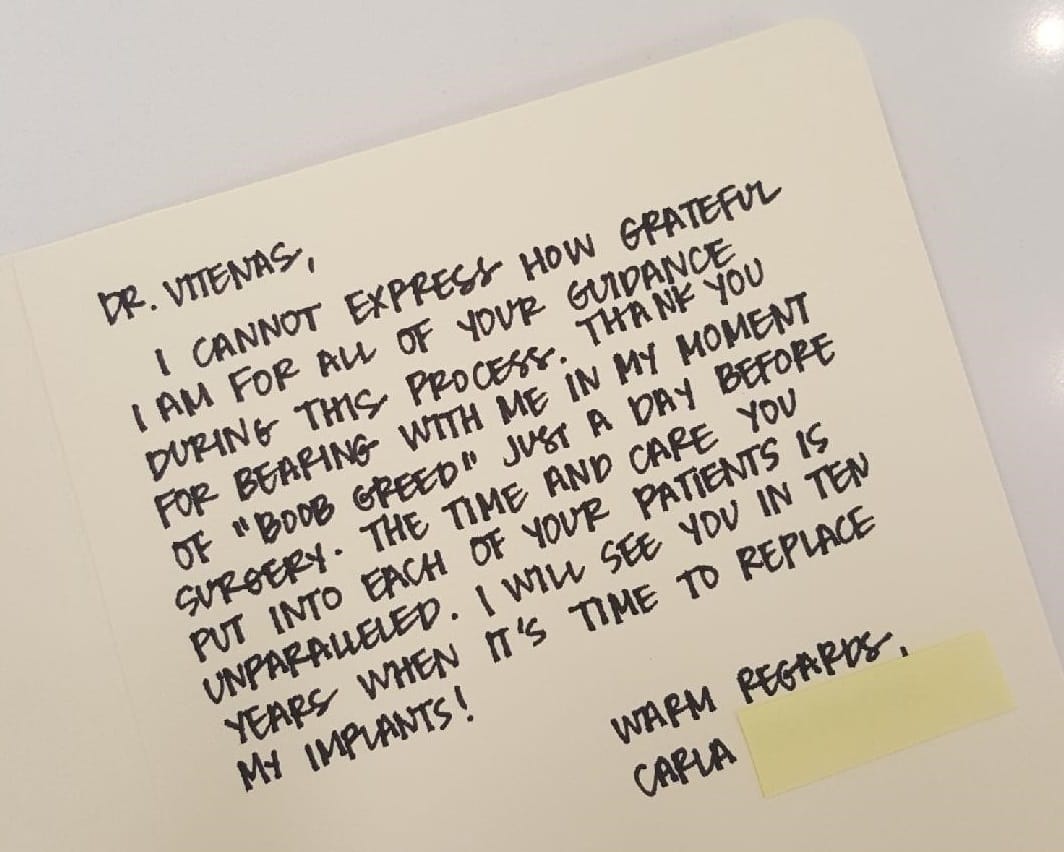 DR. VITENAS,
I CANNOT EXPRESS HOW GRATEFUL
I AM FOR ALL OF YOUR GUIDANCE
DURING THIS PROCESS. THANK YOU
FOR BEARING WITH ME IN MY MOMENT
OF "BOOB GREED" JUST A DAY BEFORE
SURGERY. THE TIME AND CARE YOU
PUT INTO EACH OF YOUR PATIENTS IS
UNPARALLELED. I WILL SEE YOU IN TEN
YEARS WHEN IT'S TIME TO REPLACE
MY IMPLANTS!
WARM REGARDS,
CARLA